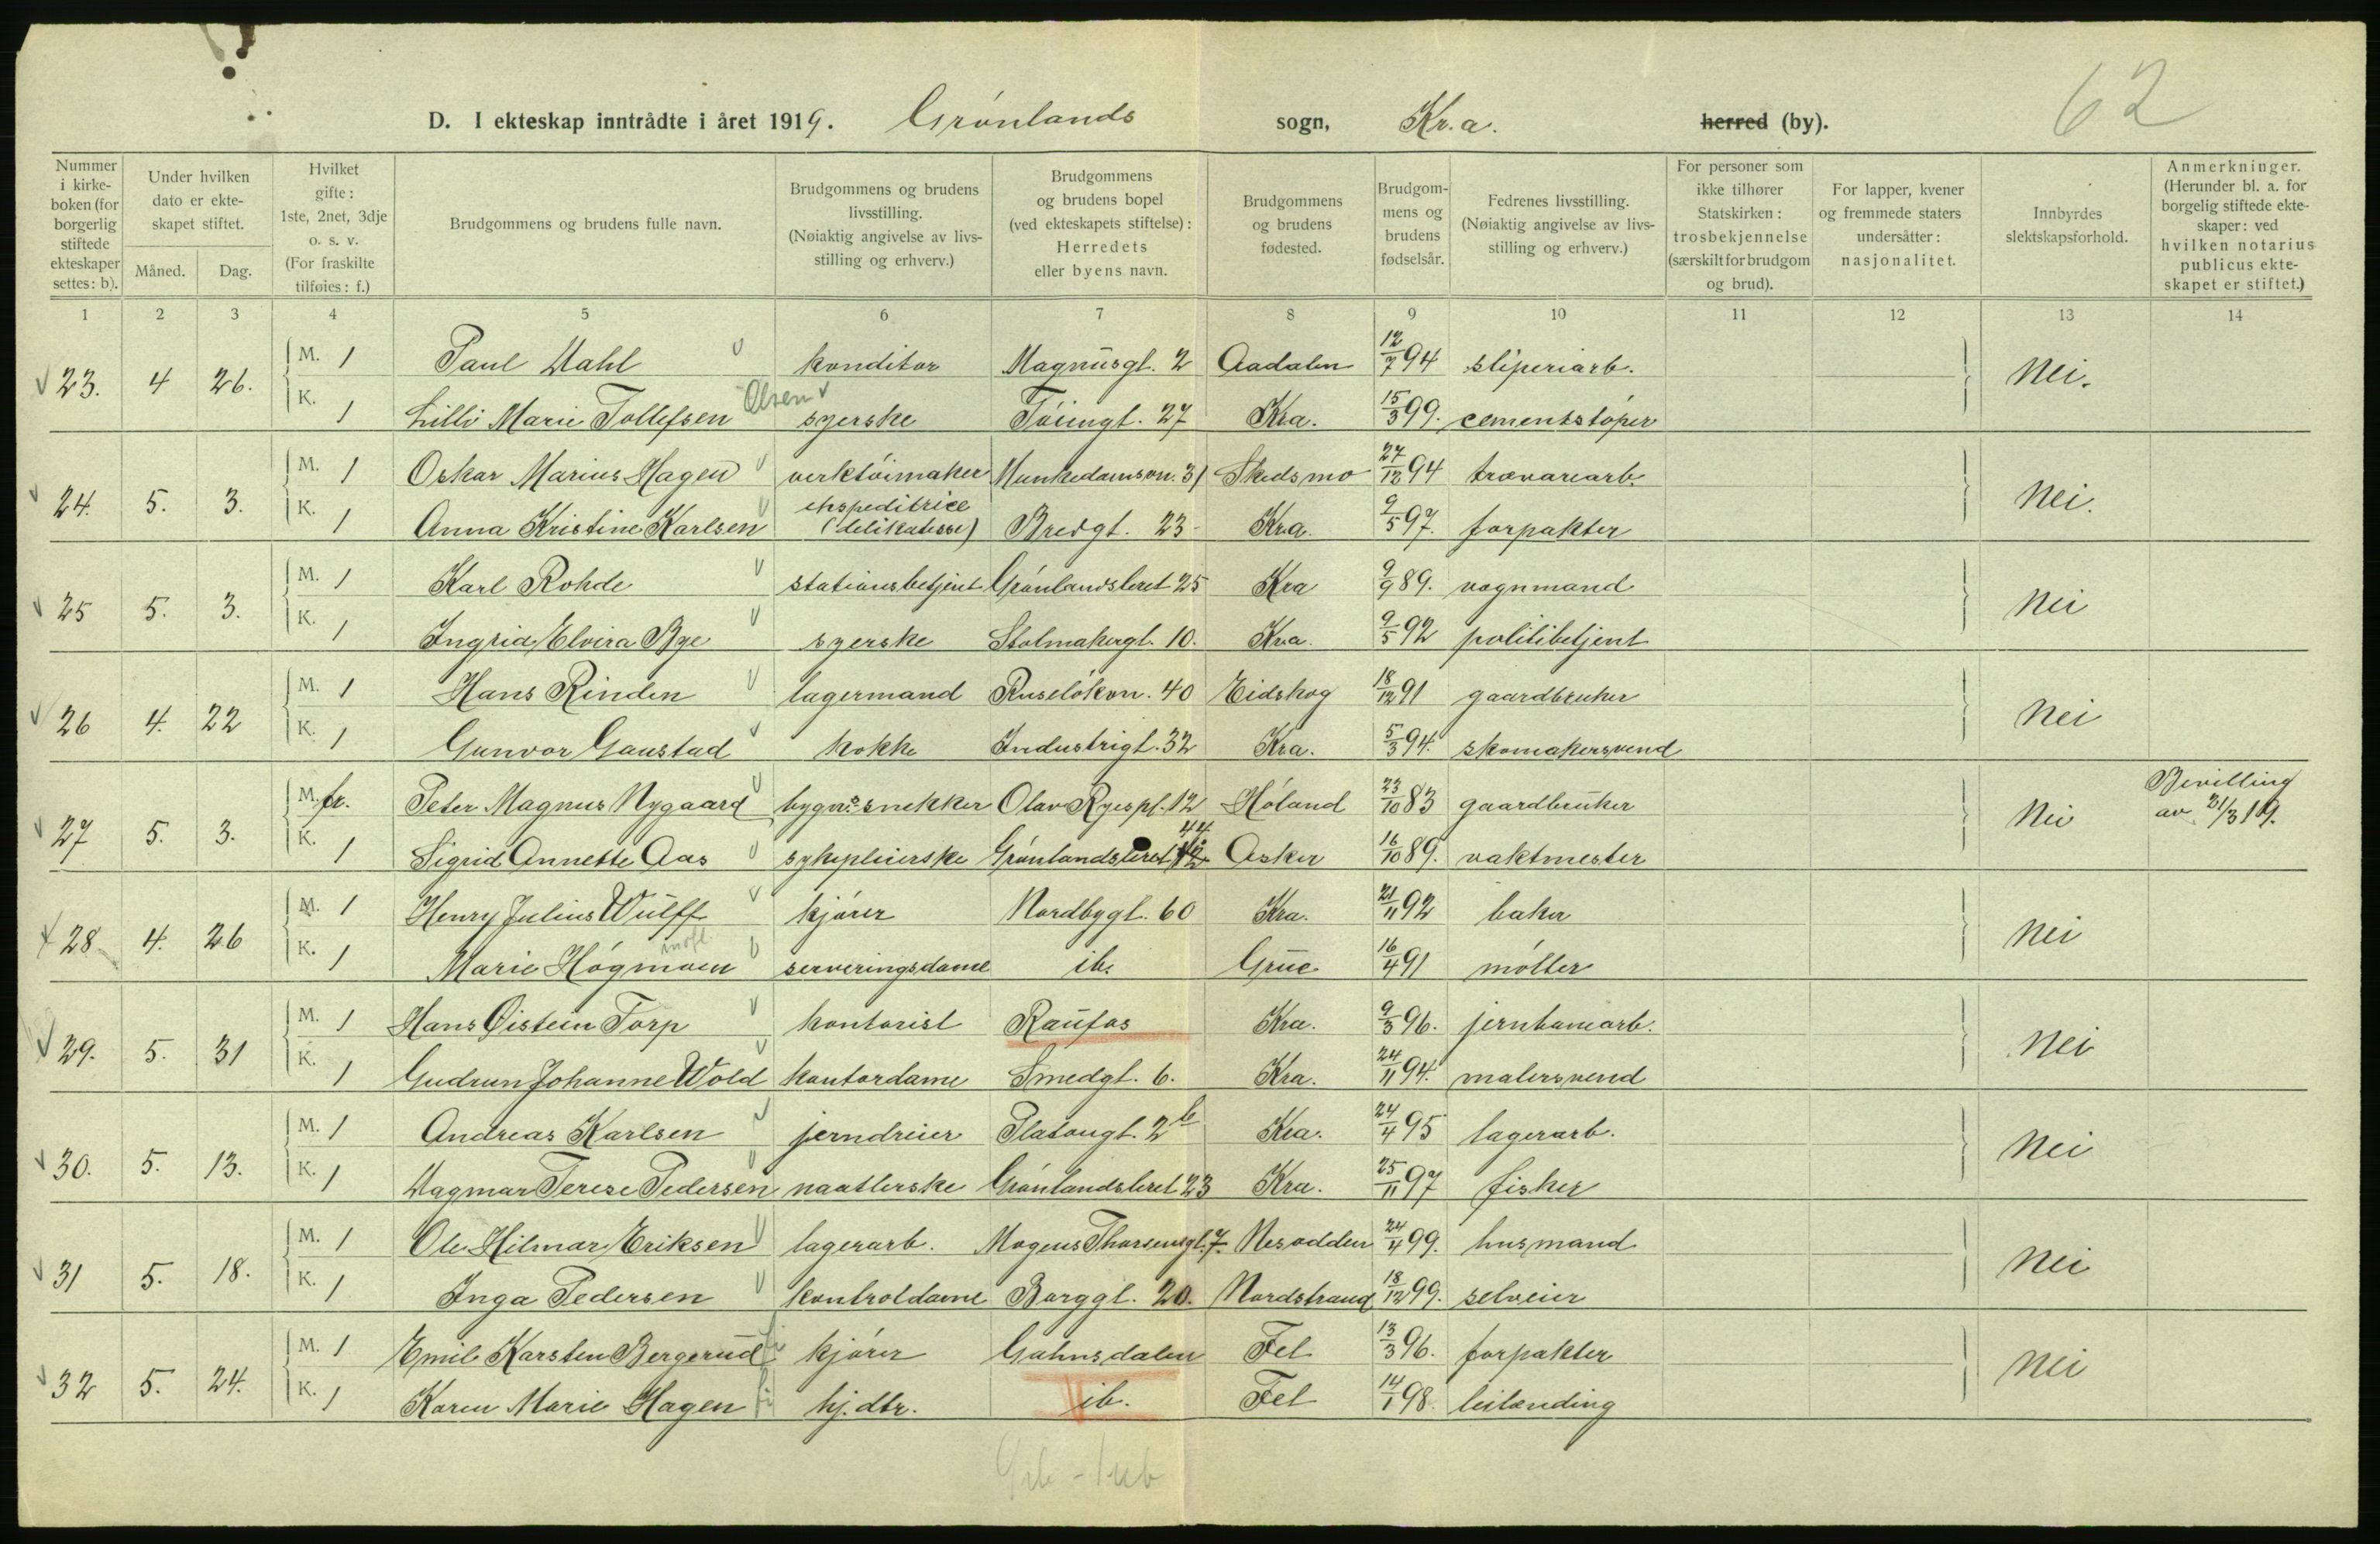 62
D. I ekteskap inntrådte i året 1919. Grønlands sogn, Kr.a. herred (by).
Nummer i kirkeboken (for borgerlig stiftede ekteskaper settes: b).
Under hvilken dato er ekteskapet stiftet.
Måned. Dag.
Hvilket gifte: 1ste, 2net, 3dje o. s. v. (For fraskilte tilføies: f.)
Brudgommens og brudens fulle navn.
Brudgommens og brudens livsstilling. (Nøiaktig angivelse av livsstilling og erhverv.)
Brudgommens og brudens bopel (ved ekteskapets stiftelse): Herredets eller byens navn.
Brudgommens og brudens fødested.
Brudgommens og brudens fødselsår.
Fedrenes livsstilling. (Nøiaktig angivelse av livsstilling og erhverv.)
For personer som ikke tilhører Statskirken: trosbekjennelse (særskilt for brudgom og brud).
For lapper, kvener og fremmede staters undersåtter: nasjonalitet.
Innbyrdes slektskapsforhold.
Anmerkninger. (Herunder bl. a. for borgelig stiftede ekteskaper: ved hvilken notarius publicus ekteskapet er stiftet.)
1 2 3 4 5 6 7 8 9 10 11 12 13 14
23. 4 26. M. 1 Paul Dahl konditor Magnusgt. 2 Aadalen 12/7 94 sliperiarb. Nei.
K. 1 Lilli Marie Tollefsen Olsen syerske Tøiengt. 27 Kra. 15/3 99. cementstøper
24. 5. 3. M. 1 Oskar Marius Hagen verktøimaker Munkedamsvn. 31 Skedsmo 27/12 94 trævarearb. Nei.
K. 1 Anna Kristine Karlsen ekspeditrice (delikatesse) Bredgt. 23 Kra. 9/5 97. forpakter
25 5. 3. M. 1 Karl Rohde stationsbetjent Grønlandsleret 25 Kra 9/9 89. vognmand Nei
K. 1 Ingrid Elvira Bye syerske Stolmakergt. 10. Kra. 9/5 92 politibetjent
26 4. 22 M. 1 Hans Rinden lagermand Ruseløkvn. 40 Eidskog 18/12 91 gaardbruker Nei
K. 1 Gunvor Gaustad kokke Industrigt. 32 Kra. 5/3 94. skomakersvend
27 5. 3. M. fr. Peter Magnus Nygaard bygn.s.snekker Olav Ryespl. 12 Høland 23/10 83 gaardbruker Nei Bevilling av 31/3 19.
K. 1 Sigrid Annette Aas sykepleierske Grønlandsleret 44 Asker 16/10 89. vaktmester
28 4. 26 M. 1 Henry Julius Wulff kjører Nordbygt. 60 Kra. 21/11 92 baker Nei
K. 1 Marie Høgmoen serveringsdame ib. Grue 16/4 91 møller
29. 5. 31 M. 1 Hans Øistein Torp kontorist Raufos Kra. 9/3 96. jernbanearb. Nei
K. 1 Gudrun Johanne Wold kontordame Smedgt. 6. Kra. 24/11 94. malersvend
30. 5. 13. M. 1 Andreas Karlsen jerndreier Platougt. 2b Kra. 24/4 95 lagerarb. Nei
K. 1 Dagmar Terese Pedersen naatlerske Grønlandsleret 23 Kra. 25/11 97 fisker
31 5. 18. M. 1 Ole Hilmar Eriksen lagerarb. Mogens Thorsensgt. 7. Nesodden 24/4 99. husmand Nei
K. 1 Inga Pedersen kontroldame Borggt. 20. Nordstrand 18/12 99. selveier
32 5. 24. M. 1 Emil Karsten Bergerud kjører Gahnsdalen Fet 13/3 96. forpakter Nei
K. 1 Karen Marie Hagen hj.dtr. ib. Fet 14/1 98. leilænding